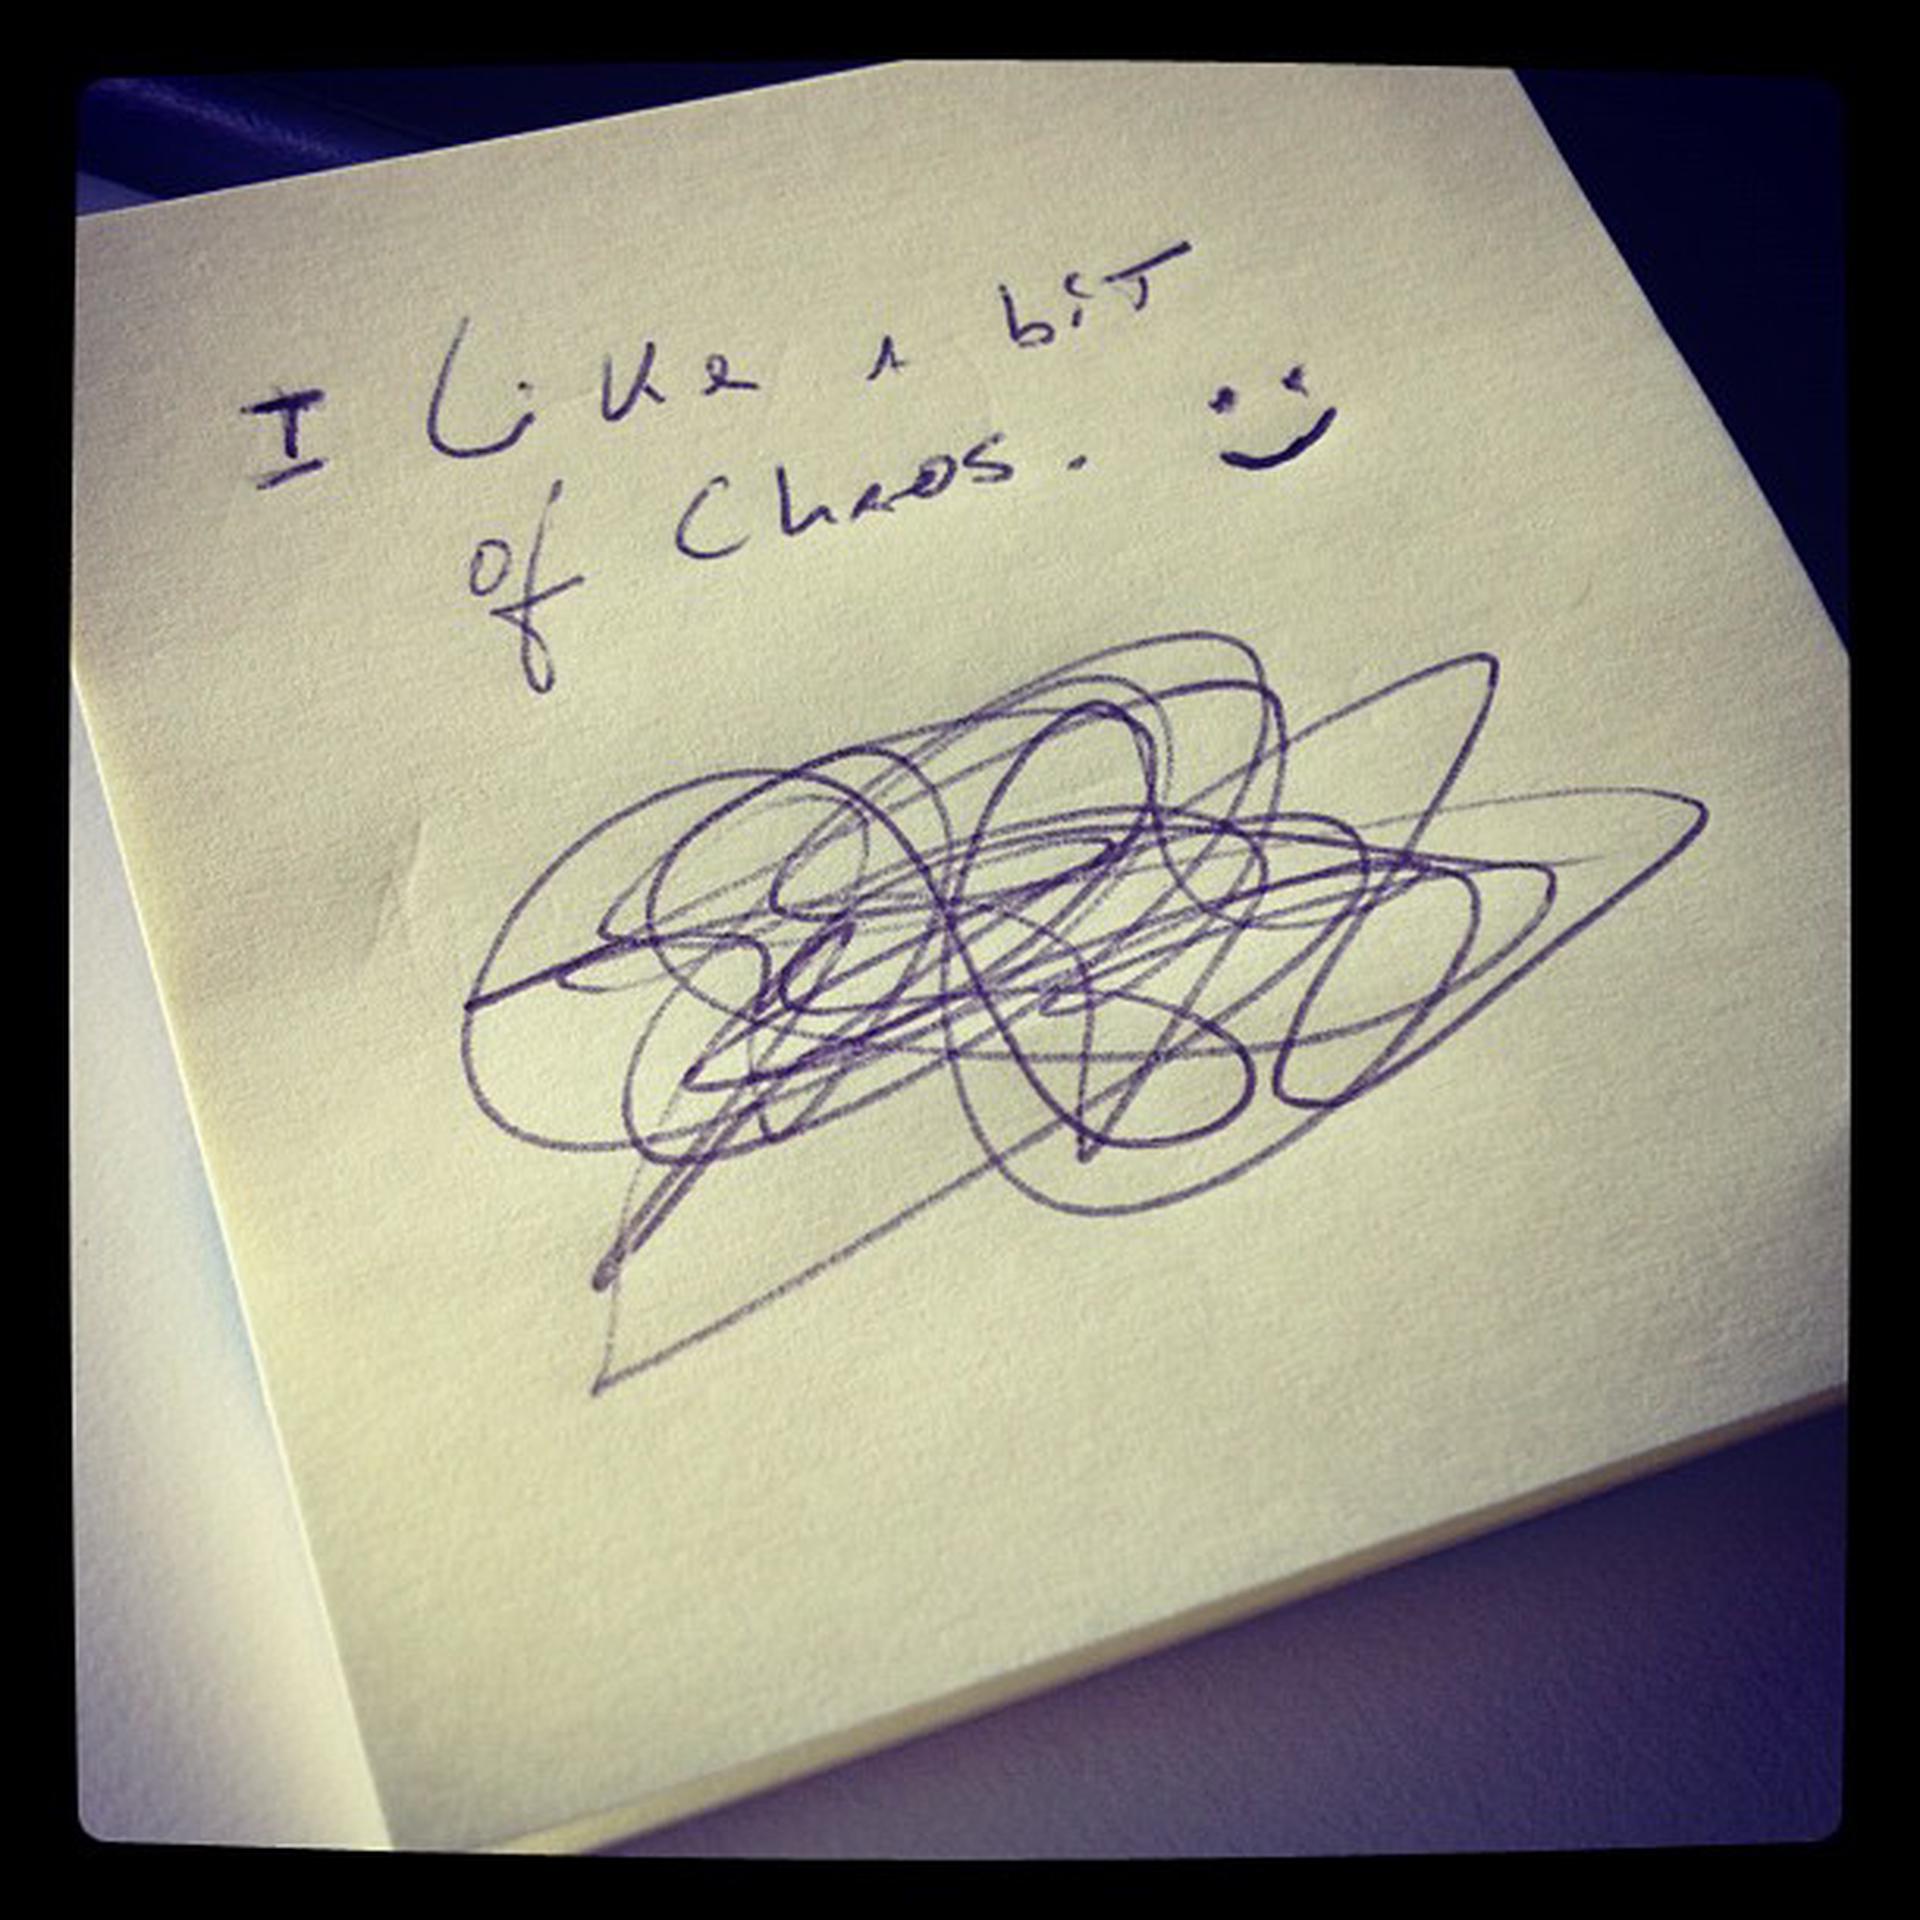 I Like a biT
of Chaos. :)